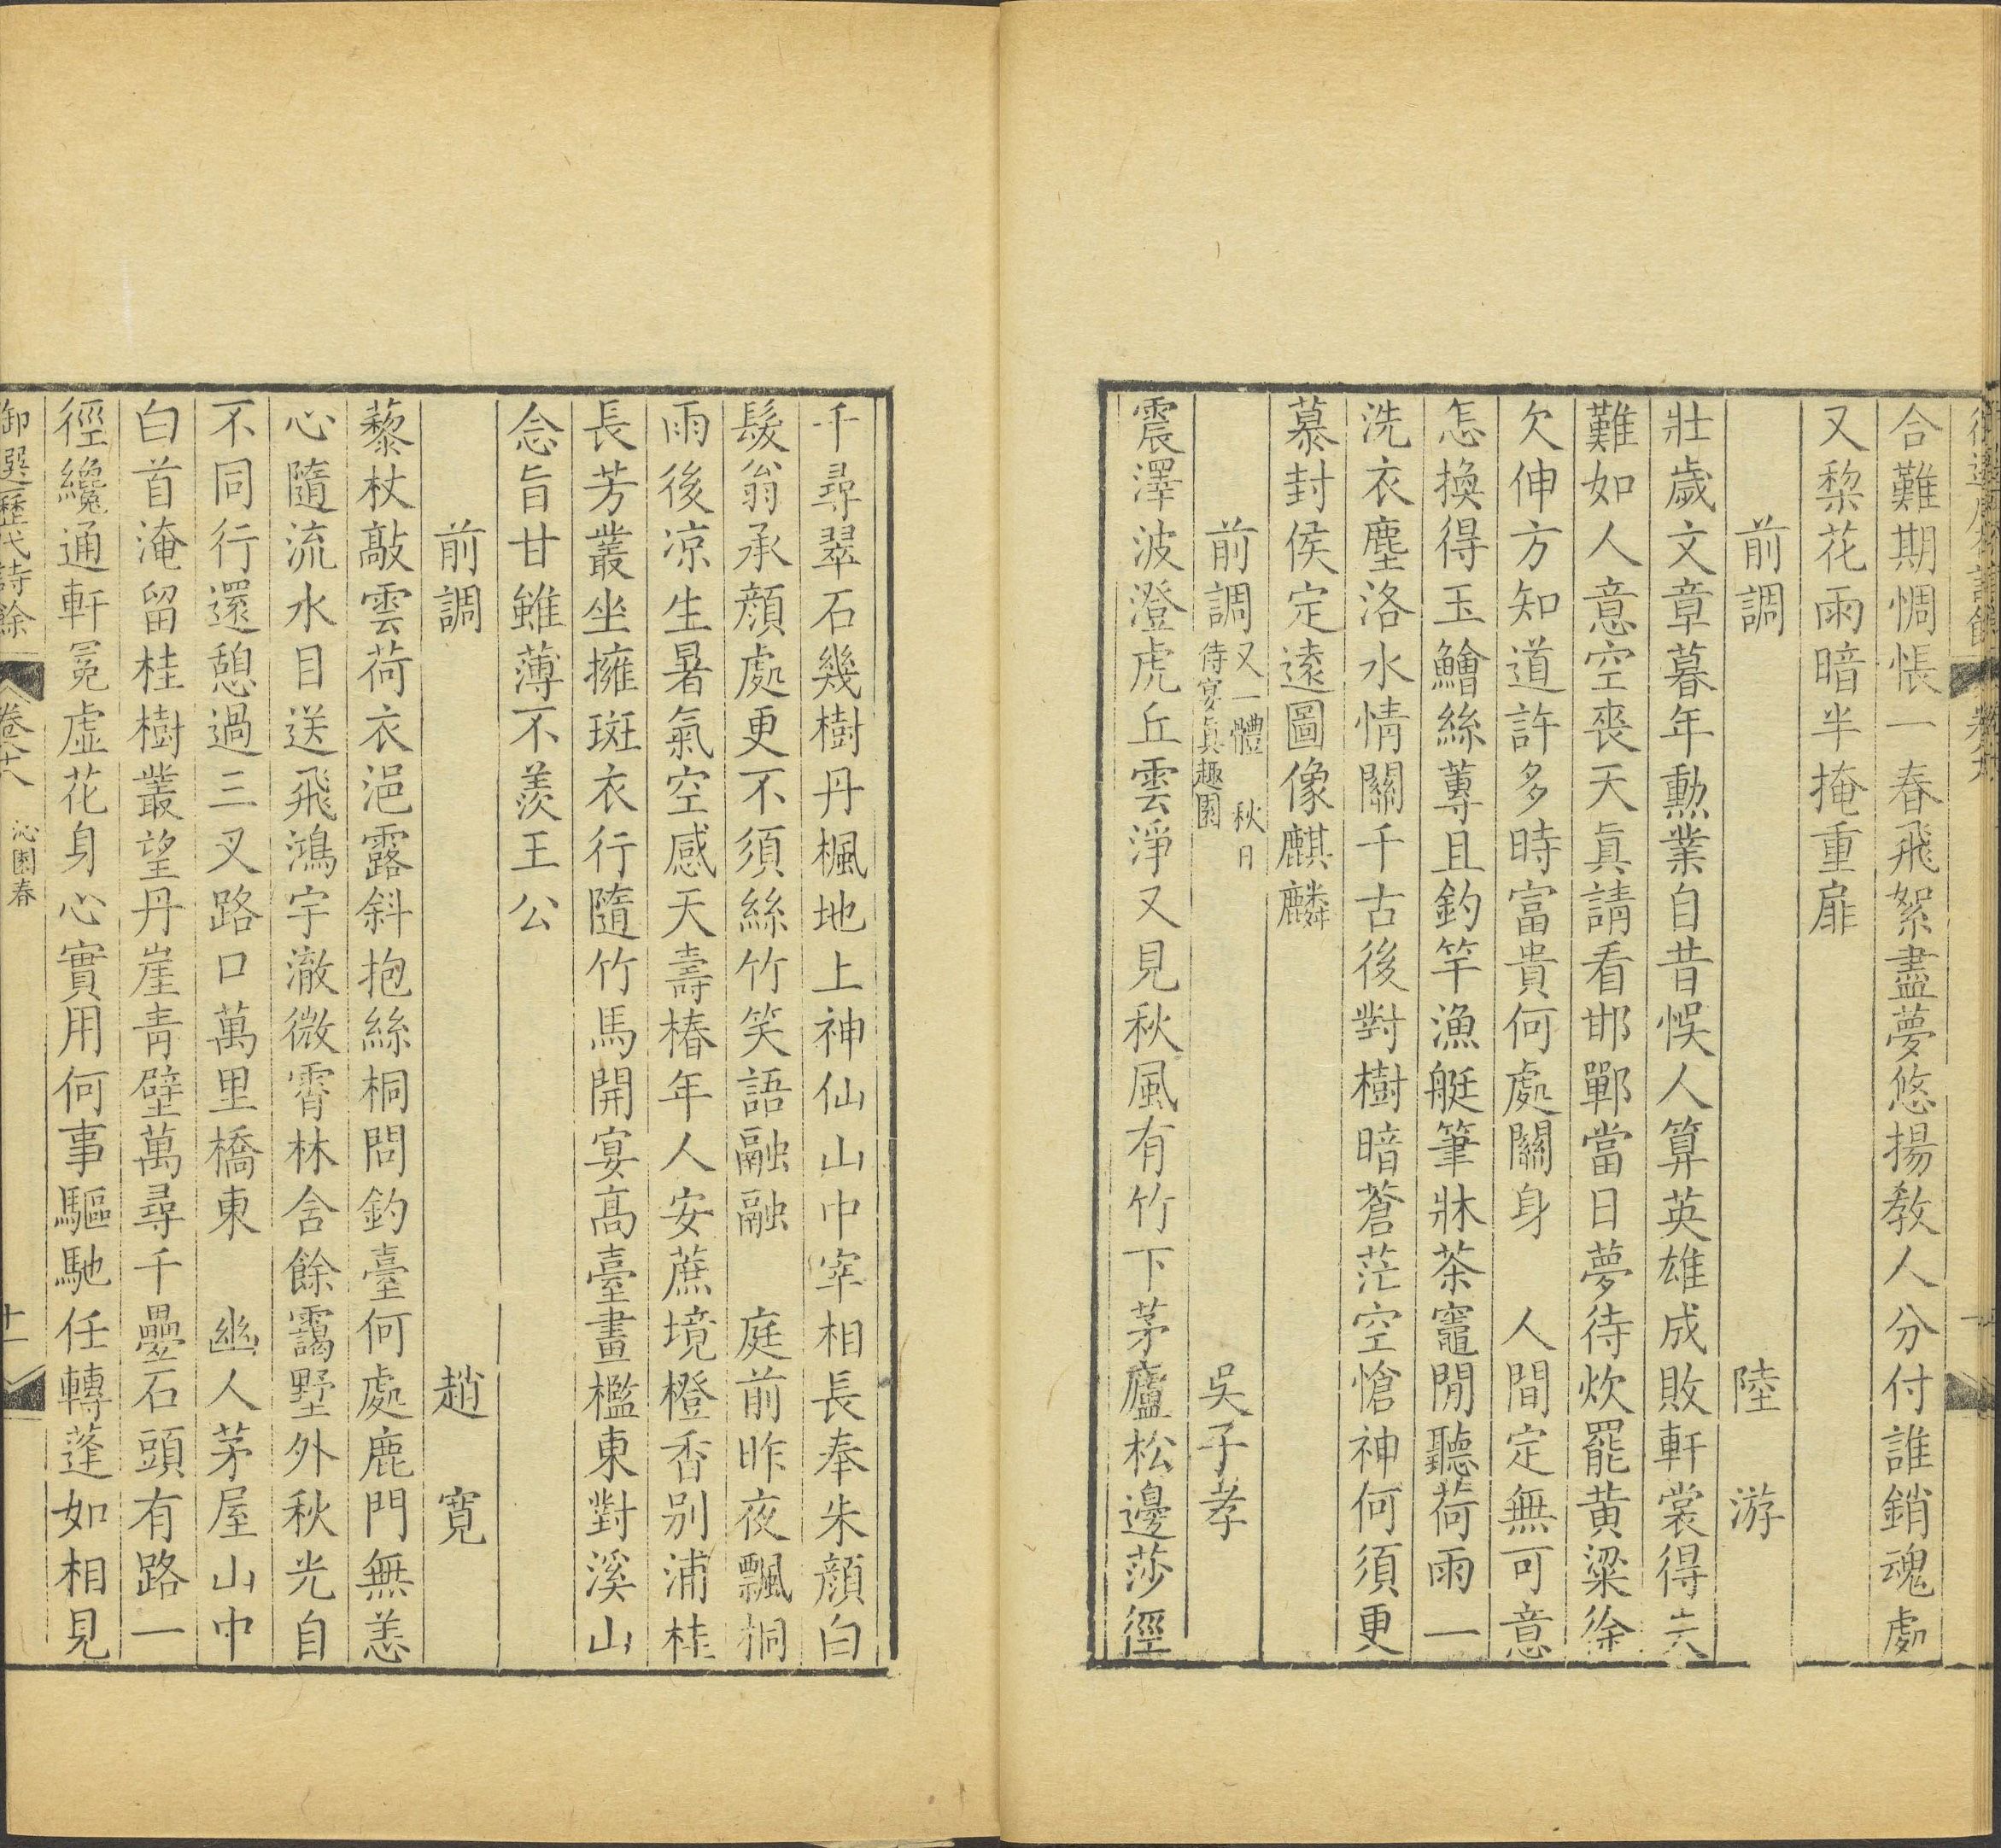 合難期惆悵一春飛絮盡夢悠揚教人分付誰銷魂處
又棃花雨暗半掩重扉
前調 陸游
壯歲文章暮年勳業自昔悞人算英雄成敗軒裳得失
難如人意空喪天眞請看邯鄲當日夢待炊罷黃粱徐
欠伸方知道許多時富貴何處關身 人間定無可意
怎換得玉鱠絲蓴且釣竿漁艇筆牀茶竈閒聽荷雨一
洗衣塵洛水情關千古後對樹暗蒼茫空愴神何須更
慕封侯定遠圖像麒麟
前調 又一體 秋日侍宴眞趣園 吳子孝
震澤波澄虎丘雲淨又見秋風有竹下茅廬松邊莎徑
千尋翠石幾樹丹楓地上神仙山中宰相長奉朱顏白
髮翁承顏處更不須絲竹笑語融融 庭前昨夜飄桐
雨後凉生暑氣空感天壽椿年人安蔗境橙香别浦桂
長芳叢坐擁斑衣行隨竹馬開宴高臺畫檻東對溪山
念旨甘雖薄不羨王公
前調 趙寬
藜杖敲雲荷衣浥露斜抱絲桐問釣臺何處鹿門無恙
心隨流水目送飛鴻宇澈微霄林含餘靄墅外秋光自
不同行還憩過三叉路口萬里橋東 幽人茅屋山中
白首淹留桂樹叢望丹崖靑壁萬尋千疊石頭有路一
徑纔通軒冕虛花身心實用何事驅馳任轉蓬如相見
御選歷代詩餘 卷八 沁園春 十一